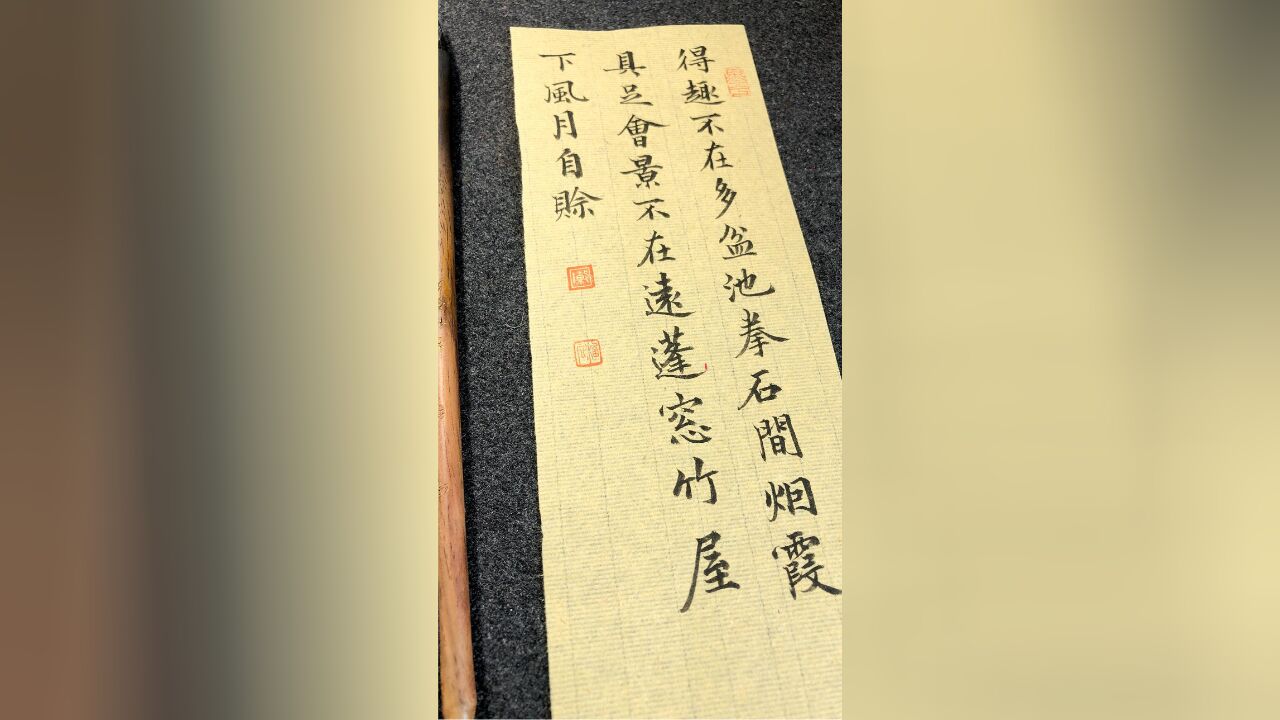 得趣不在多盆池拳石間烟霞
具足會景不在遠蓬窓竹屋
下風月自賒